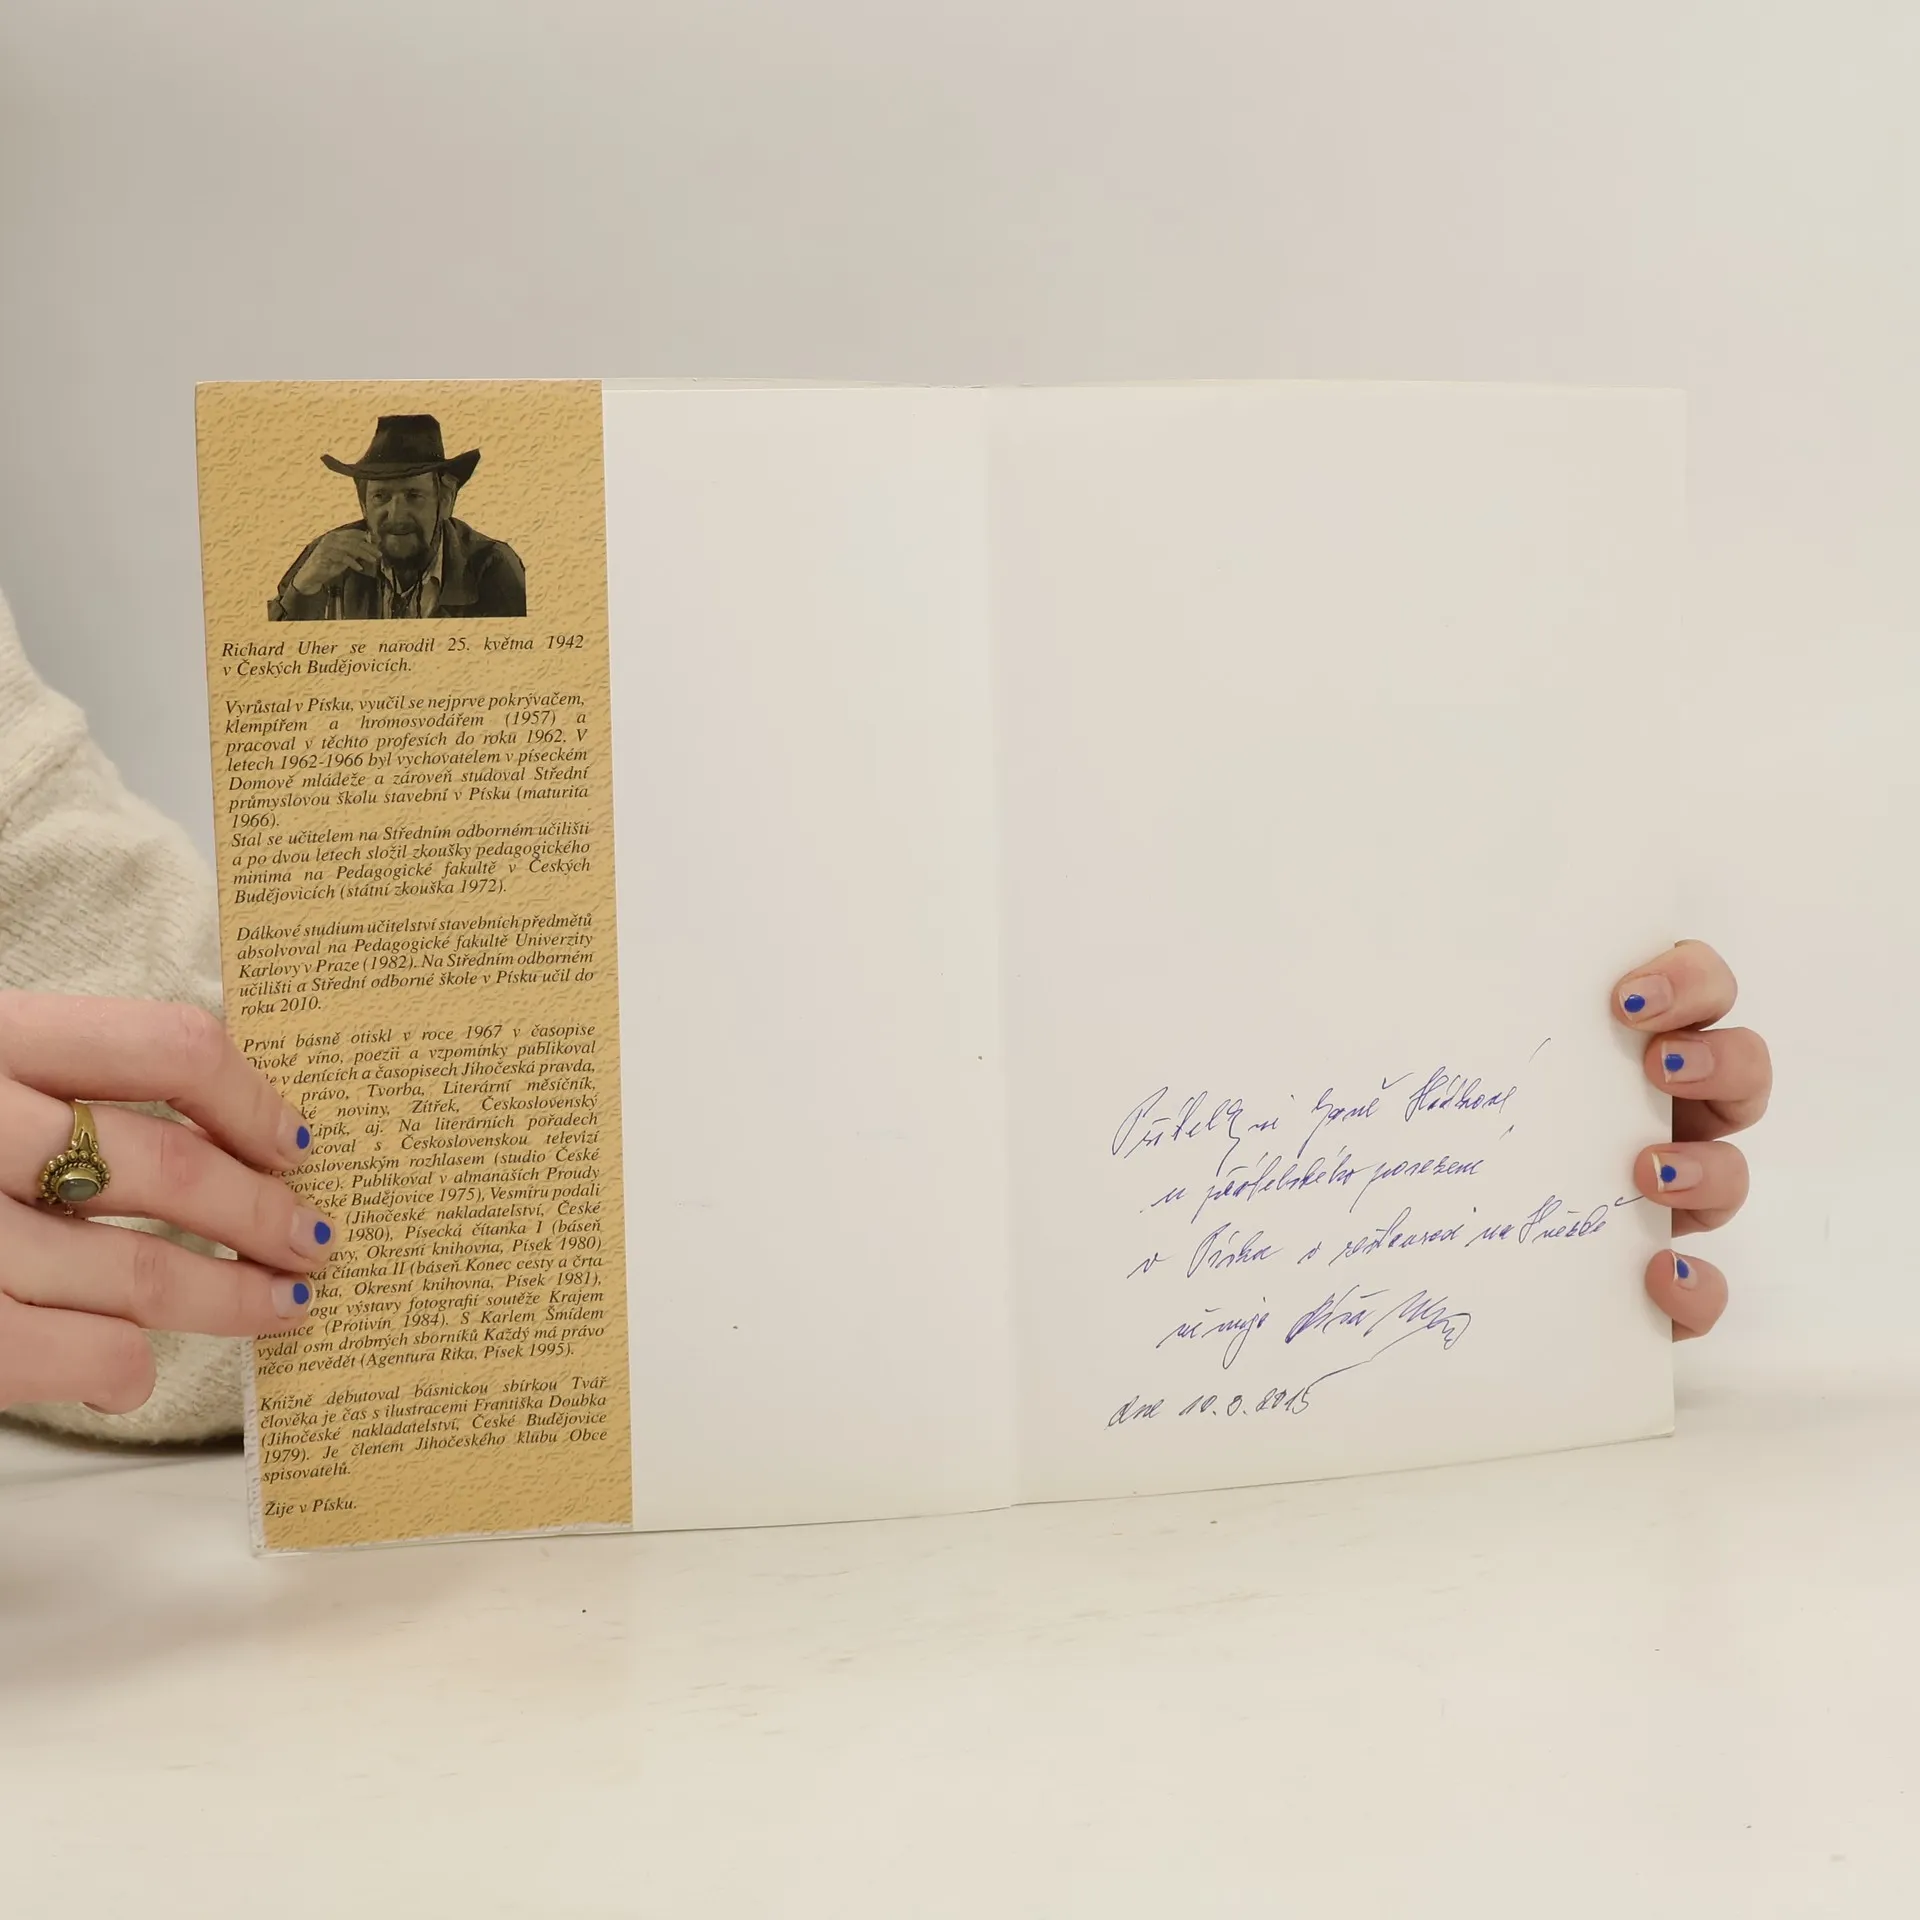 Richard Uher se narodil 25. května 1942
v Českých Budějovicích.
Vyrůstal v Písku, vyučil se nejprve pokrývačem,
klempířem a hromosvodářem (1957) a
pracoval v těchto profesích do roku 1962. V
letech 1962-1966 byl vychovatelem v píseckém
Domově mládeže a zároveň studoval Střední
průmyslovou školu stavební v Písku (maturita
1966).
Stal se učitelem na Středním odborném učilišti
a po dvou letech složil zkoušky pedagogického
minima na Pedagogické fakultě v Českých
Budějovicích (státní zkouška 1972).
Dálkové studium učitelství stavebních předmětů
absolvoval na Pedagogické fakultě Univerzity
Karlovy v Praze (1982). Na Středním odborném
učilišti a Střední odborné škole v Písku učil do
roku 2010.
První básně otiskl v roce 1967 v časopise
Divoké víno, poezii a vzpomínky publikoval
v denících a časopisech Jihočeská pravda,
právo, Tvorba, Literární měsíčník,
noviny, Zítřek, Československý
Lipík, aj. Na literárních pořadech
s Československou televizí
Československým rozhlasem (studio České
Publikoval v almanaších Proudy
České Budějovice 1975), Vesmíru podali
(Jihočeské nakladatelství, České
1980), Písecká čítanka I (báseň
Okresní knihovna, Písek 1980)
čítanka II (báseň Konec cesty a črta
Okresní knihovna, Písek 1981),
výstavy fotografií soutěže Krajem
Blanice (Protivín 1984). S Karlem Šmídem
vydal osm drobných sborníků Každý má právo
něco nevědět (Agentura Rika, Písek 1995).
Knižně debutoval básnickou sbírkou Tvář
člověka je čas s ilustracemi Františka Doubka
(Jihočeské nakladatelství, České Budějovice
1979). Je členem Jihočeského klubu Obce
spisovatelů.
Žije v Písku.
Janě
u přátelského posezení
v Písku v restauraci na
věnuje
dne 10. 3. 2015